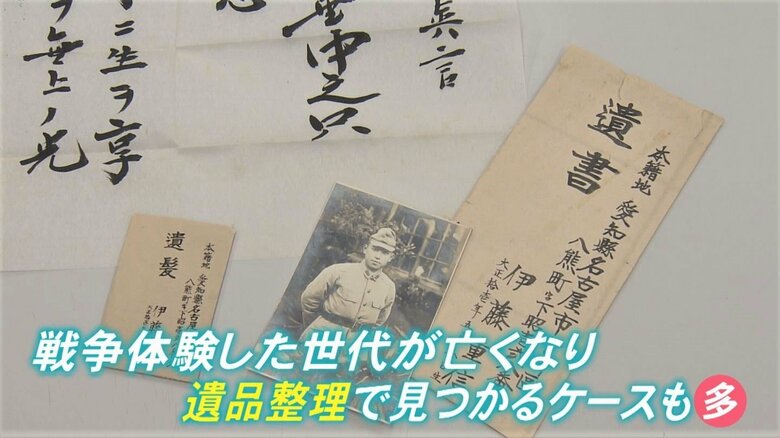 ニ生ヲ享
ヲ無上ノ光
遺書
本籍地 愛知縣名古屋市
八熊町字下
伊藤
大正拾壱年
遺髪
本籍地 愛知縣名古屋
八熊町字下
伊藤
戦争体験した世代が亡くなり
遺品整理で見つかるケースも多